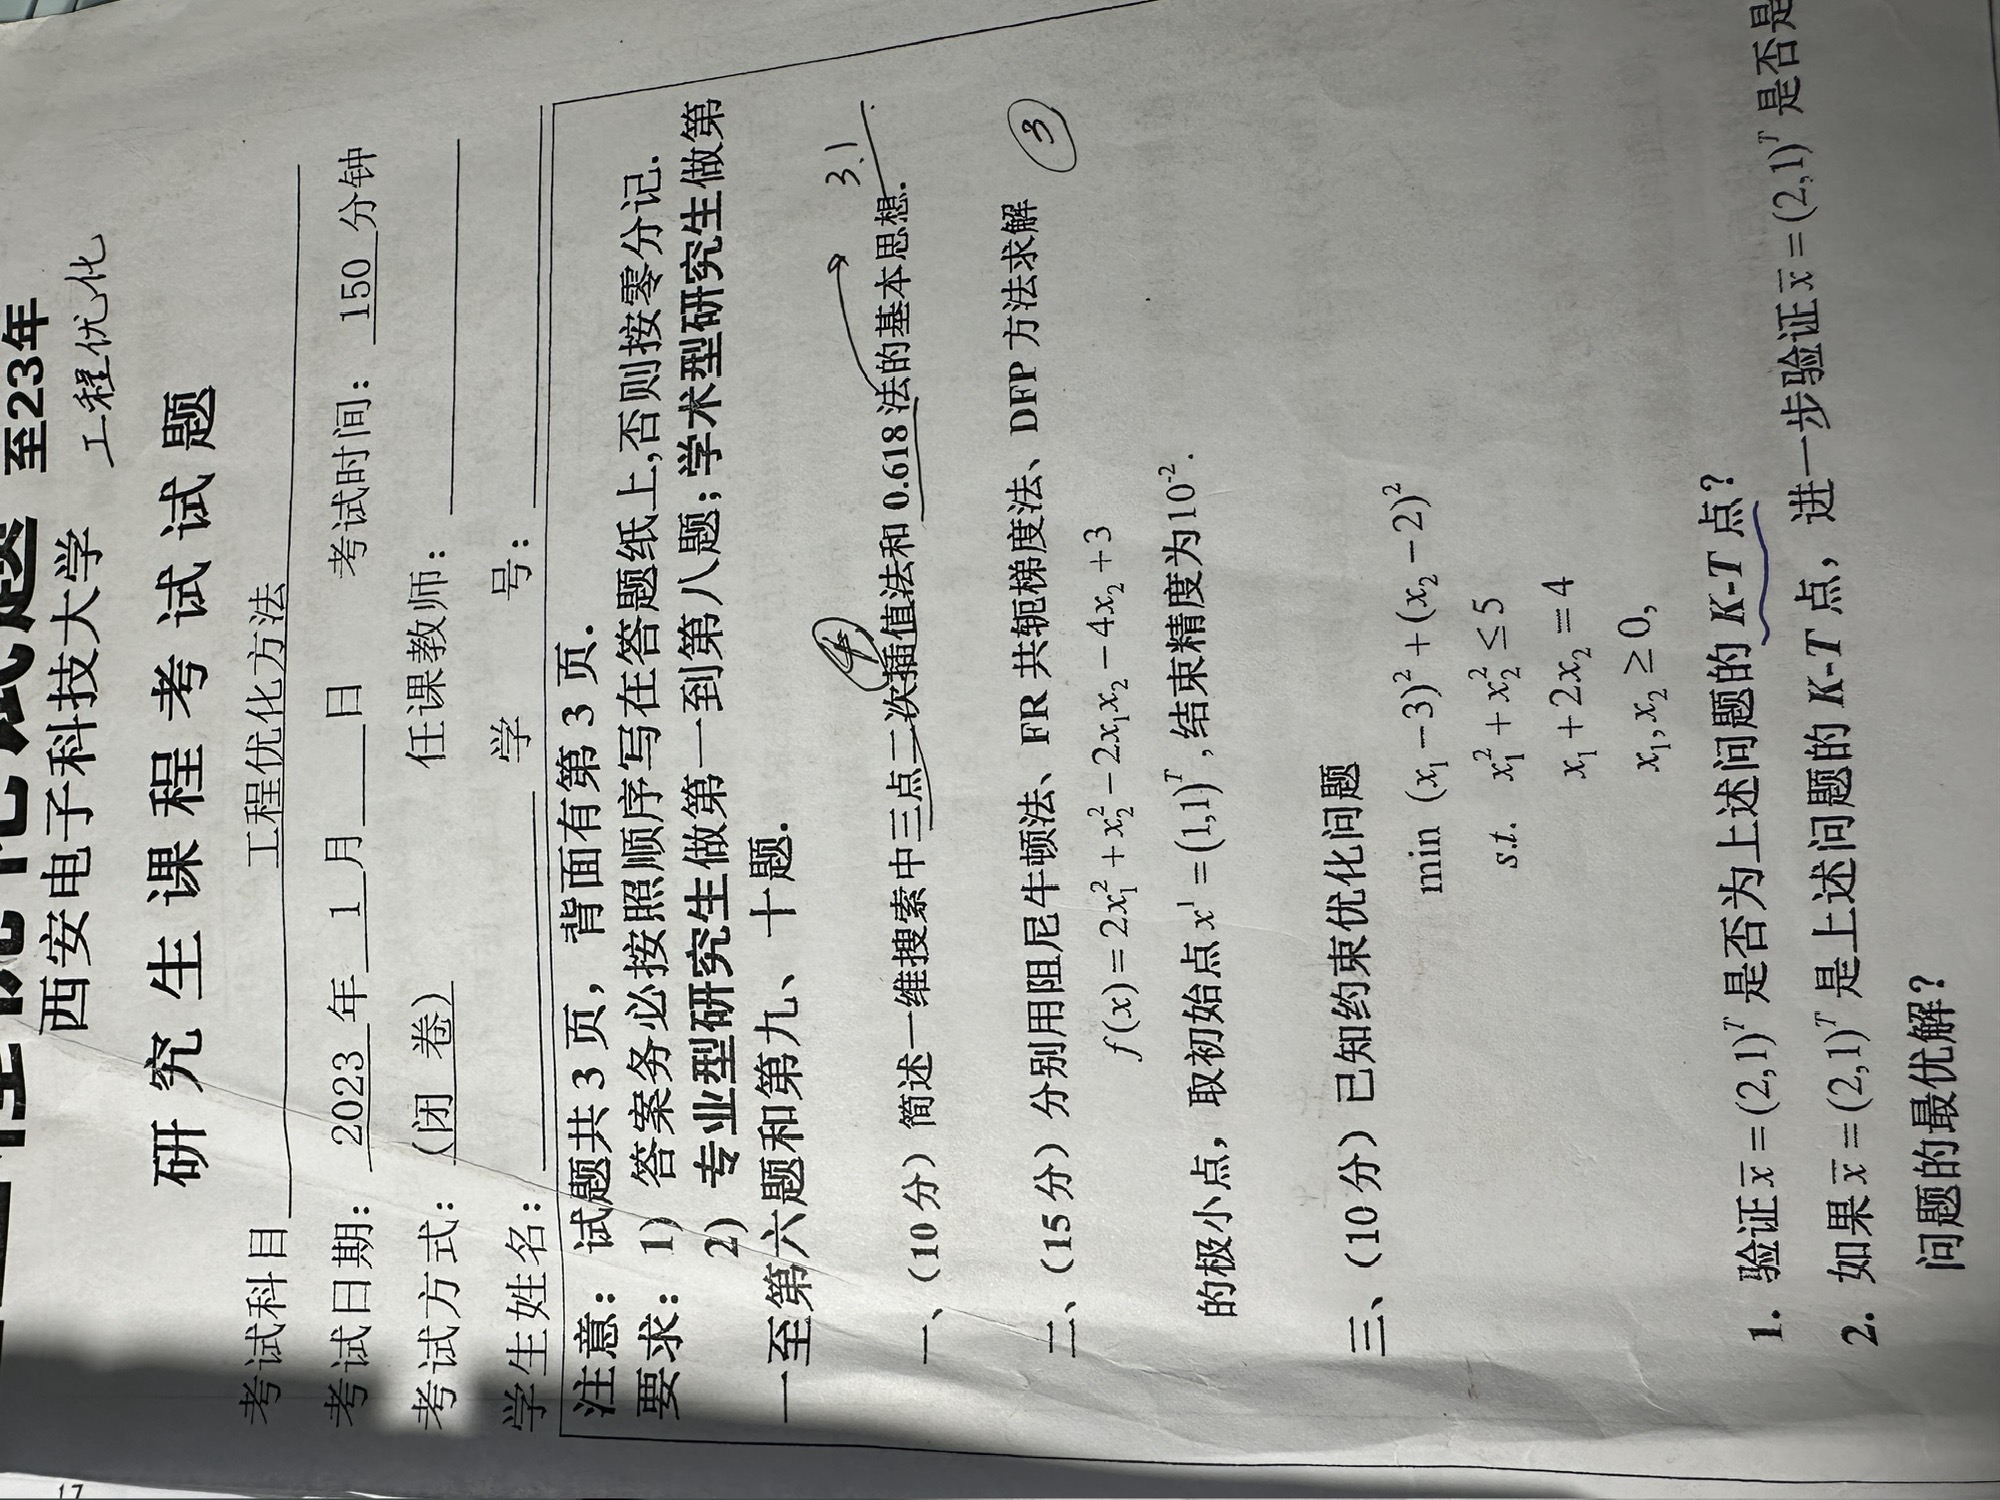 至23年
西安电子科技大学 工程优化
研究生课程考试试题
考试科目 工程优化方法
考试日期: 2023 年 1 月 日 考试时间: 150 分钟
考试方式: (闭 卷) 任课教师:
学生姓名: 学 号:
注意: 试题共 3 页, 背面有第 3 页.
要求: 1) 答案务必按照顺序写在答题纸上,否则按零分记.
2) 专业型研究生做第一到第八题; 学术型研究生做第
一至第六题和第九、十题.
④ 3.1
一、(10 分) 简述一维搜索中三点二次插值法和 0.618 法的基本思想.
二、(15 分) 分别用阻尼牛顿法、FR 共轭梯度法、DFP 方法求解 ③
f(x) = 2x₁² + x₂² − 2x₁x₂ − 4x₂ + 3
的极小点, 取初始点 x¹ = (1,1)ᵀ, 结束精度为10⁻².
三、(10 分) 已知约束优化问题
min (x₁ − 3)² + (x₂ − 2)²
s.t. x₁² + x₂² ≤ 5
x₁ + 2x₂ = 4
x₁, x₂ ≥ 0,
1. 验证 x̄ = (2,1)ᵀ 是否为上述问题的 K-T 点?
2. 如果 x̄ = (2,1)ᵀ 是上述问题的 K-T 点, 进一步验证 x̄ = (2,1)ᵀ 是否是
问题的最优解?
17